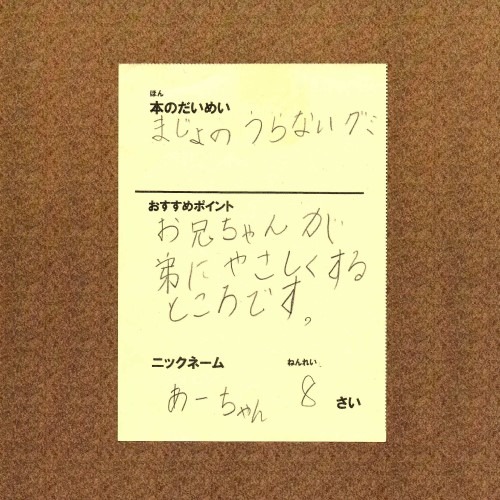 ほん
本のだいめい
まじょのうらないグミ
おすすめポイント
お兄ちゃんが
弟にやさしくする
ところです。
ニックネーム ねんれい
あーちゃん 8 さい